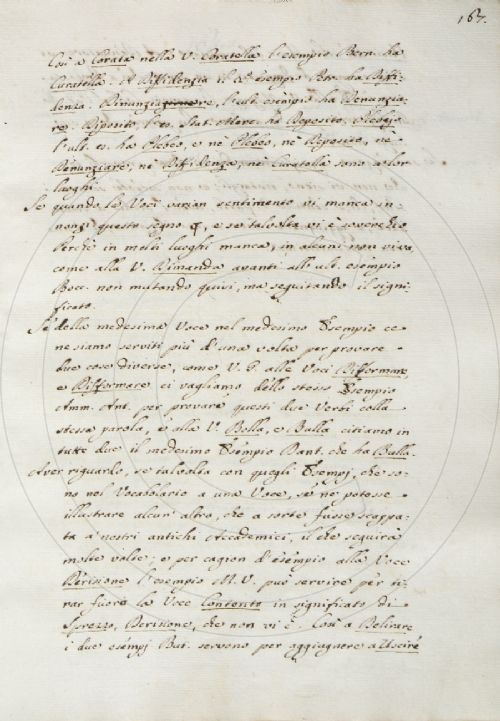 167.
Così a Corata nella V. Coratella l'esempio Bern. ha
Curatella. A Diffidenzia il 2° esempio Ber. ha Diffi-
denza. Dinunziare, l'ult. esempio ha Denunzia-
re. Diposito, l'es. Stat. Merc. ha Deposito. Plebejo
l'ult. es. ha Plebeo, e nè Plebeo, nè Deposito, nè
Denunziare, nè Diffidenza, nè Curatella sono a lor
luoghi.
Se quando le Voci varian sentimento vi manca in-
nanzi questo segno ¶, e se talvolta vi è soverchio
Perchè in molti luoghi manca, in alcuni non vi va,
come alla V. Dimanda avanti all'ult. esempio
Bocc. non mutando quivi, ma seguitando il signi-
ficato.
Se della medesima Voce nel medesimo Esempio ce
ne siamo serviti più d'una volta per provare
due cose diverse, come V. G. alle Voci Difformare,
e Disformare ci vagliamo dello stesso Esempio
Amm. Ant. per provare questi due Verbi colla
stessa parola, e alla V. Bolla, e Bulla citiamo in
tutte due il medesimo Esempio Dant. che ha Bulla.
Aver riguardo, se talvolta con quegli Esempj, che so-
no nel Vocabolario a una Voce, se ne potesse
illustrare alcun'altra, che a sorte fusse scappa-
ta a' nostri antichi Accademici, il che seguirà
molte volte; e per cagion d'esempio alla Voce
Derisione l'esempio M. V. può servire per ti-
rar fuora la Voce Contento in significato di
Sprezzo, Derisione, che non vi è. Così a Delivrare
i due esempj But. servono per aggiugnere a Uscire